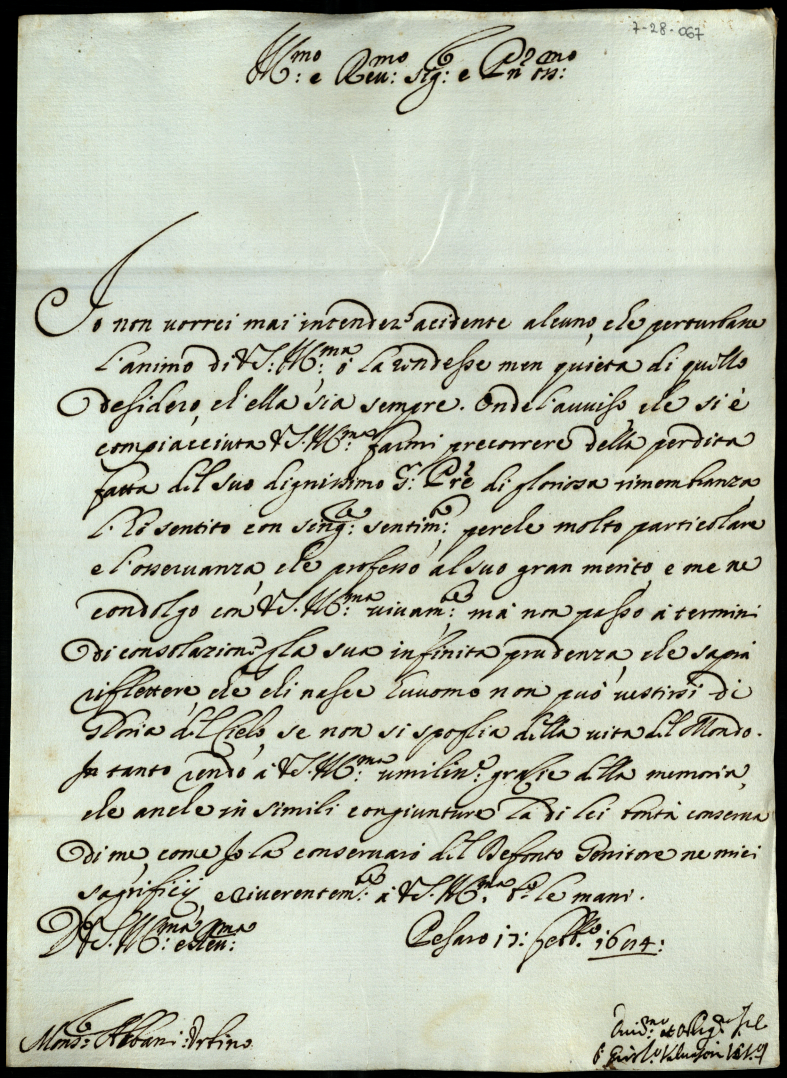 7-28-067
Ill:mo e Reu:mo Sig:re e P̃ron Oss:mo
Io non uorrei mai intender accidente alcuno, che perturbasse
l'animo di V.S. Ill:ma ò la rendesse men quieta di quello
desidero, ch'ella sia sempre. Onde l'auuiso, che si è
compiacciuta V.S. Ill:ma farmi precorrere della perdita
fatta del suo dignissimo S:r Prẽ di gloriosa rimembranza
l'hò sentito con sing:re sentim:to, perche molto particolare
e l'osseruanza, che professo al suo gran merito, e me ne
condolgo con V.S. Ill:ma uiuam:te ma non passo à termini
di consolazione la sua infinita prudenza, che saprà
riflettere, che chi nasce huuomo non può uestirsi di
Gloria del Cielo, se non si spoglia della uita del Mondo.
In tanto rendo à V.S. Ill:ma umiliss:e grazie della memoria,
che anche in simili congiunture la di lei bontà conserua
di me, come Io la conseruarò del Defonto Genitore ne miei
sagrificij, e riuerentem:te à V.S. Ill:ma b:o le mani.
D V.S. Ill:ma e Reu:ma
Pesaro 17: Febb:ro 1684:
Mons:r Albani: Urbino
Diu:mo et Oblig:mo